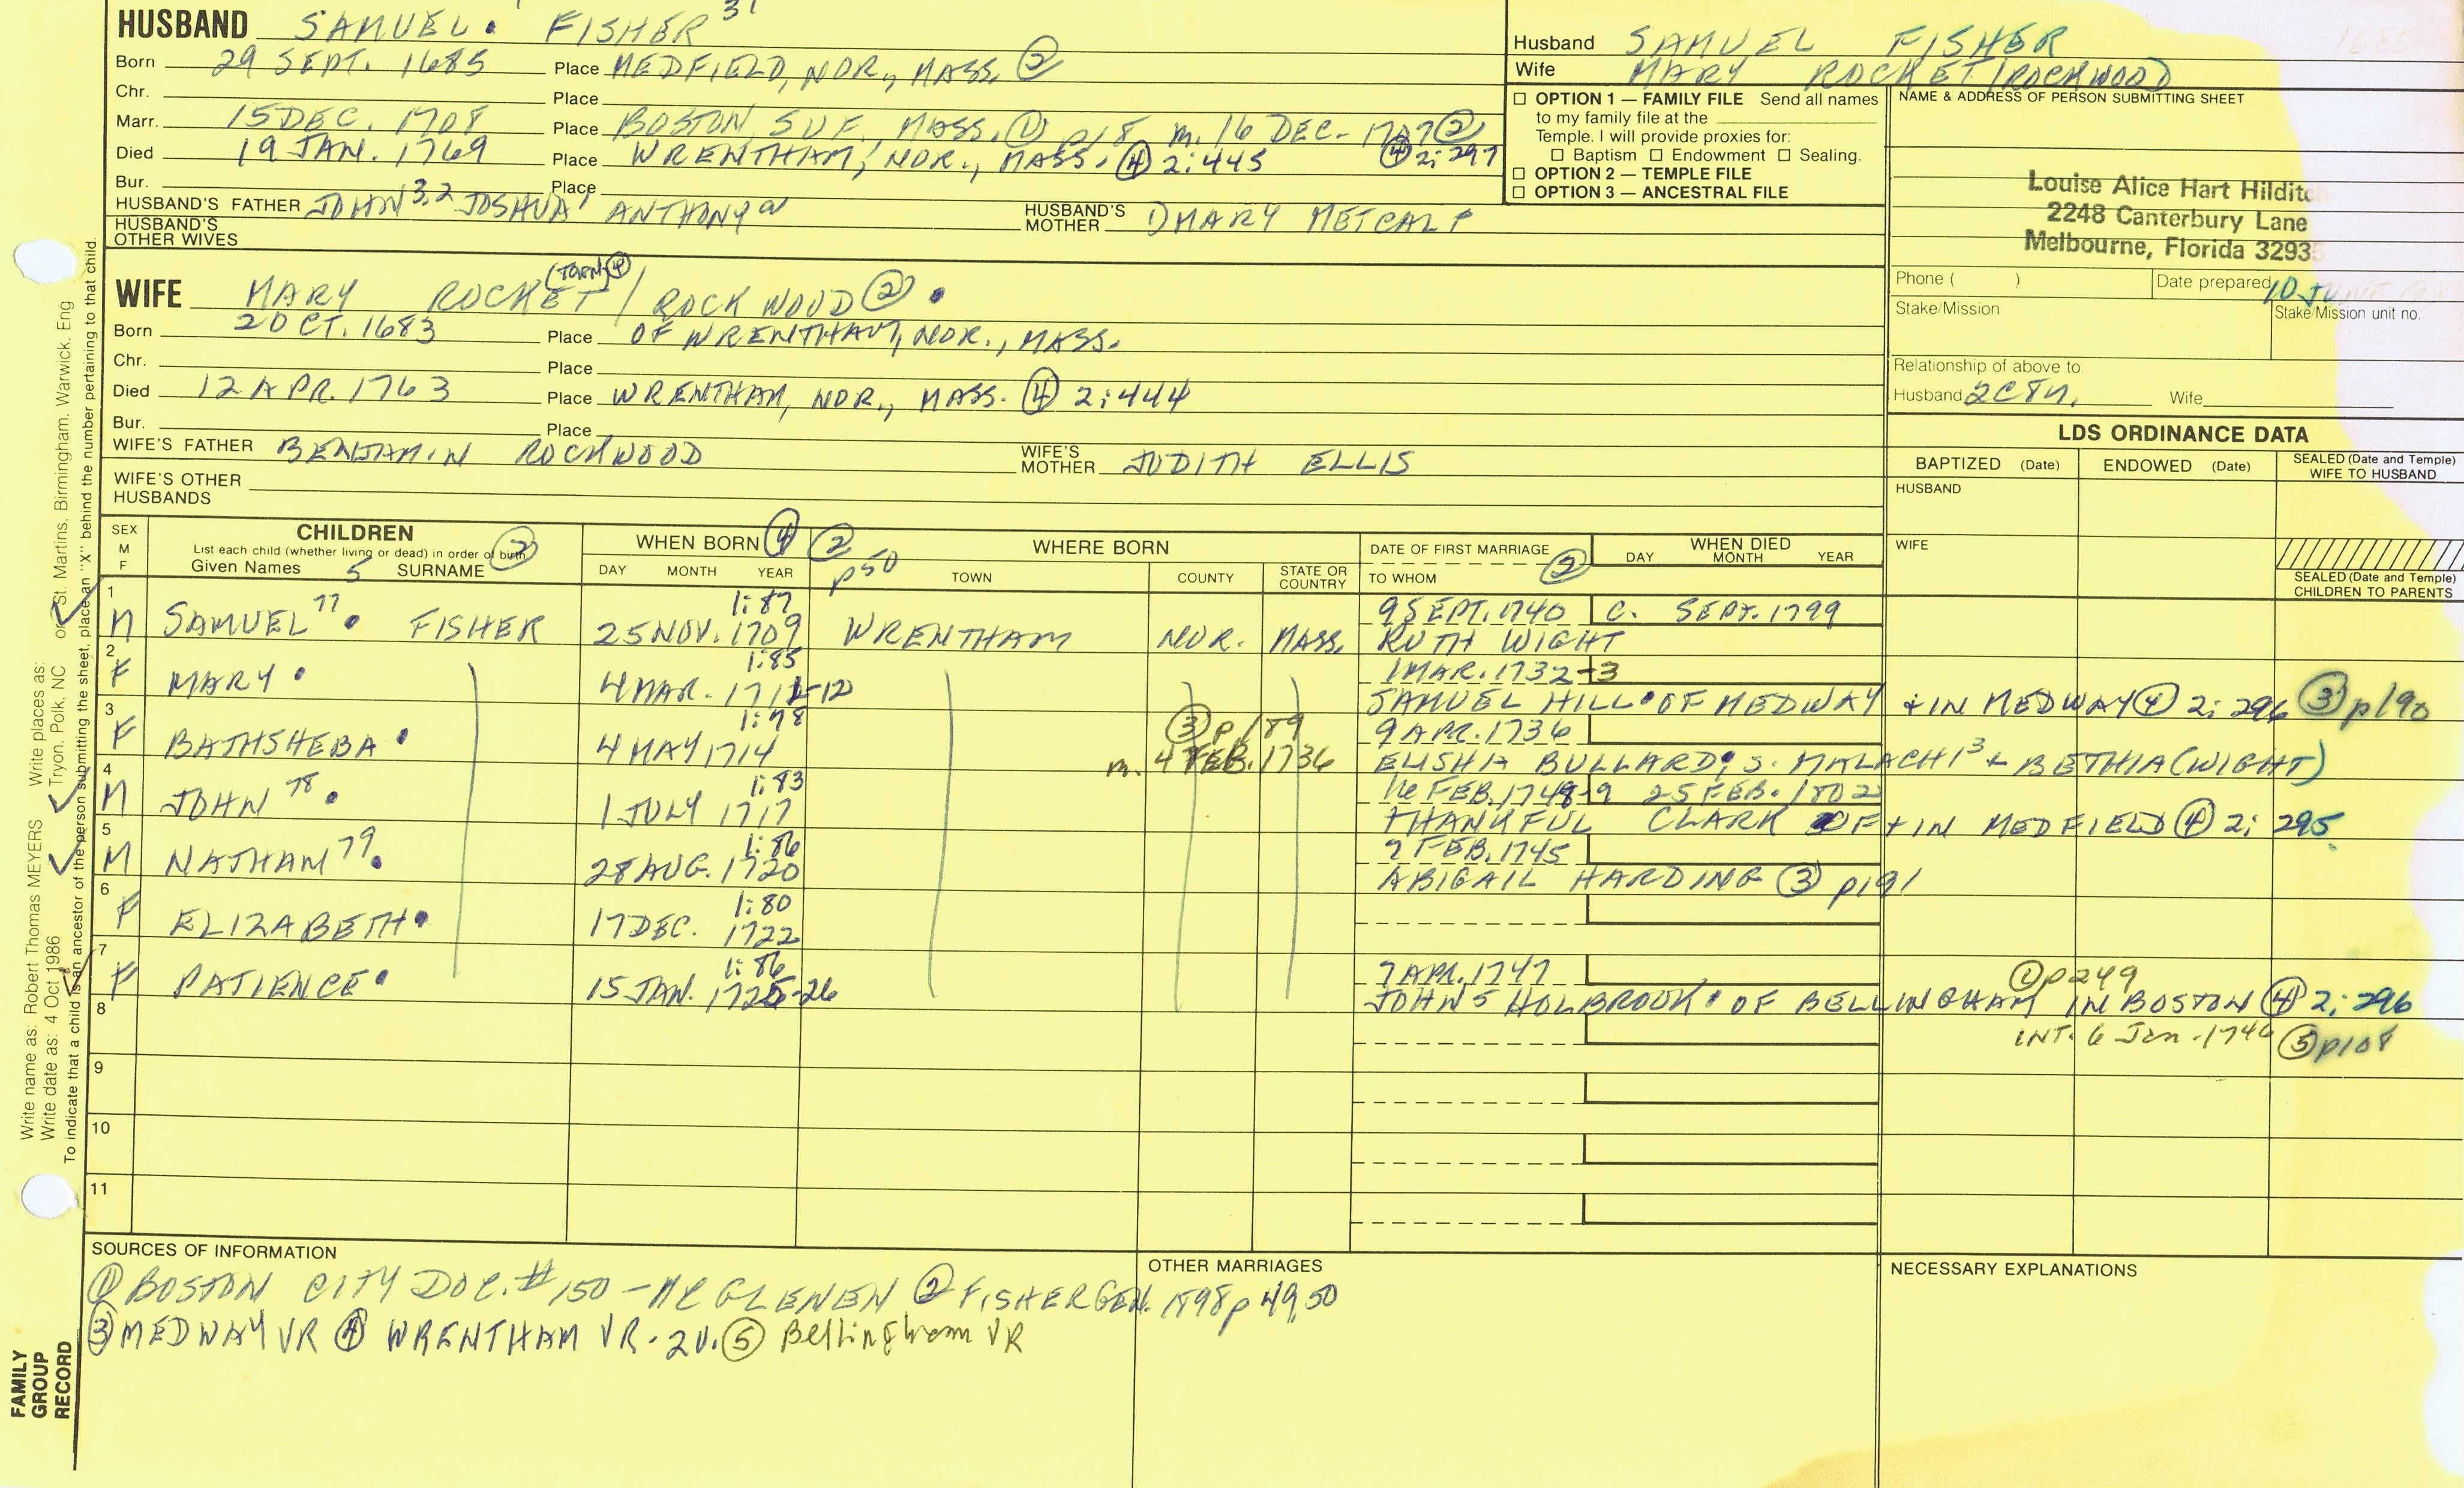 HUSBAND SAMUEL. FISHER 31
Born 29 SEPT. 1685 Place MEDFIELD, NOR., MASS. ②
Chr. Place
Marr. 15 DEC. 1708 Place BOSTON, SUF., MASS. ① p18 m. 16 DEC. 1707 ② ④ 2:297
Died 19 JAN. 1769 Place WRENTHAM, NOR., MASS. ④ 2:445
Bur. Place
HUSBAND'S FATHER JOHN 3,2 JOSHUA 1 ANTHONY a HUSBAND'S MOTHER ① MARY METCALF
HUSBAND'S OTHER WIVES
WIFE MARY ROCKET (TORN) ④ / ROCKWOOD ② .
Born 2 OCT. 1683 Place OF WRENTHAM, NOR., MASS.
Chr. Place
Died 12 APR. 1763 Place WRENTHAM, NOR., MASS. ④ 2:444
Bur. Place
WIFE'S FATHER BENJAMIN ROCKWOOD WIFE'S MOTHER JUDITH ELLIS
WIFE'S OTHER HUSBANDS
Husband SAMUEL FISHER
Wife MARY ROCKET/ROCKWOOD
☐ OPTION 1 — FAMILY FILE Send all names
to my family file at the
Temple. I will provide proxies for:
☐ Baptism ☐ Endowment ☐ Sealing.
☐ OPTION 2 — TEMPLE FILE
☐ OPTION 3 — ANCESTRAL FILE
NAME & ADDRESS OF PERSON SUBMITTING SHEET
Louise Alice Hart Hilditc
2248 Canterbury Lane
Melbourne, Florida 3293
Phone ( ) Date prepared 10 JU
Stake/Mission Stake/Mission unit no.
Relationship of above to:
Husband 2C8n. Wife
LDS ORDINANCE DATA
BAPTIZED (Date) ENDOWED (Date) SEALED (Date and Temple) WIFE TO HUSBAND
HUSBAND
WIFE
SEALED (Date and Temple) CHILDREN TO PARENTS
SEX M F CHILDREN List each child (whether living or dead) in order of birth ② Given Names 5 SURNAME
WHEN BORN ④ DAY MONTH YEAR
② p50 WHERE BORN TOWN COUNTY STATE OR COUNTRY
DATE OF FIRST MARRIAGE TO WHOM ② WHEN DIED DAY MONTH YEAR
1 M SAMUEL 77 . FISHER 1:87 25 NOV. 1709 WRENTHAM NOR. MASS. 9 SEPT. 1740 C. SEPT. 1799
RUTH WIGHT
2 F MARY . 1:85 4 MAR. 1711-12 1 MAR. 1732-3
SAMUEL HILL . OF MEDWAY + IN MEDWAY ④ 2:296 ③ p190
3 F BATHSHEBA . 1:78 4 MAY 1714 ③ p189 9 APR. 1736
m. 4 FEB. 1736 ELISHA BULLARD, S. MALACHI 3 + BETHIA (WIGHT)
4 M JOHN 78 . 1:83 1 JULY 1717 16 FEB. 1748-9 25 FEB. 1802
THANKFUL CLARK OF + IN MEDFIELD ④ 2:295
5 M NATHAM 79 . 1:86 28 AUG. 1720 7 FEB. 1745
ABIGAIL HARDING ③ p191
6 F ELIZABETH . 1:80 17 DEC. 1722
7 F PATIENCE . 1:86 15 JAN. 1725-26 7 APR. 1747 ① p249
JOHN 5 HOLBROOK . OF BELLINGHAM IN BOSTON ④ 2:296
8 INT. 6 Jan. 1746 ⑤ p108
9
10
11
SOURCES OF INFORMATION
① BOSTON CITY DOC. #150 - MCGLENEN ② FISHER GEN. 1898 p 49, 50
③ MEDWAY VR ④ WRENTHAM VR. 2V. ⑤ Bellingham VR
OTHER MARRIAGES
NECESSARY EXPLANATIONS
Write name as: Robert Thomas MEYERS Write places as: Tryon, Polk, NC or St. Martins, Birmingham, Warwick, Eng
Write date as: 4 Oct 1986
To indicate that a child is an ancestor of the person submitting the sheet, place an "X" behind the number pertaining to that child.
FAMILY
GROUP
RECORD